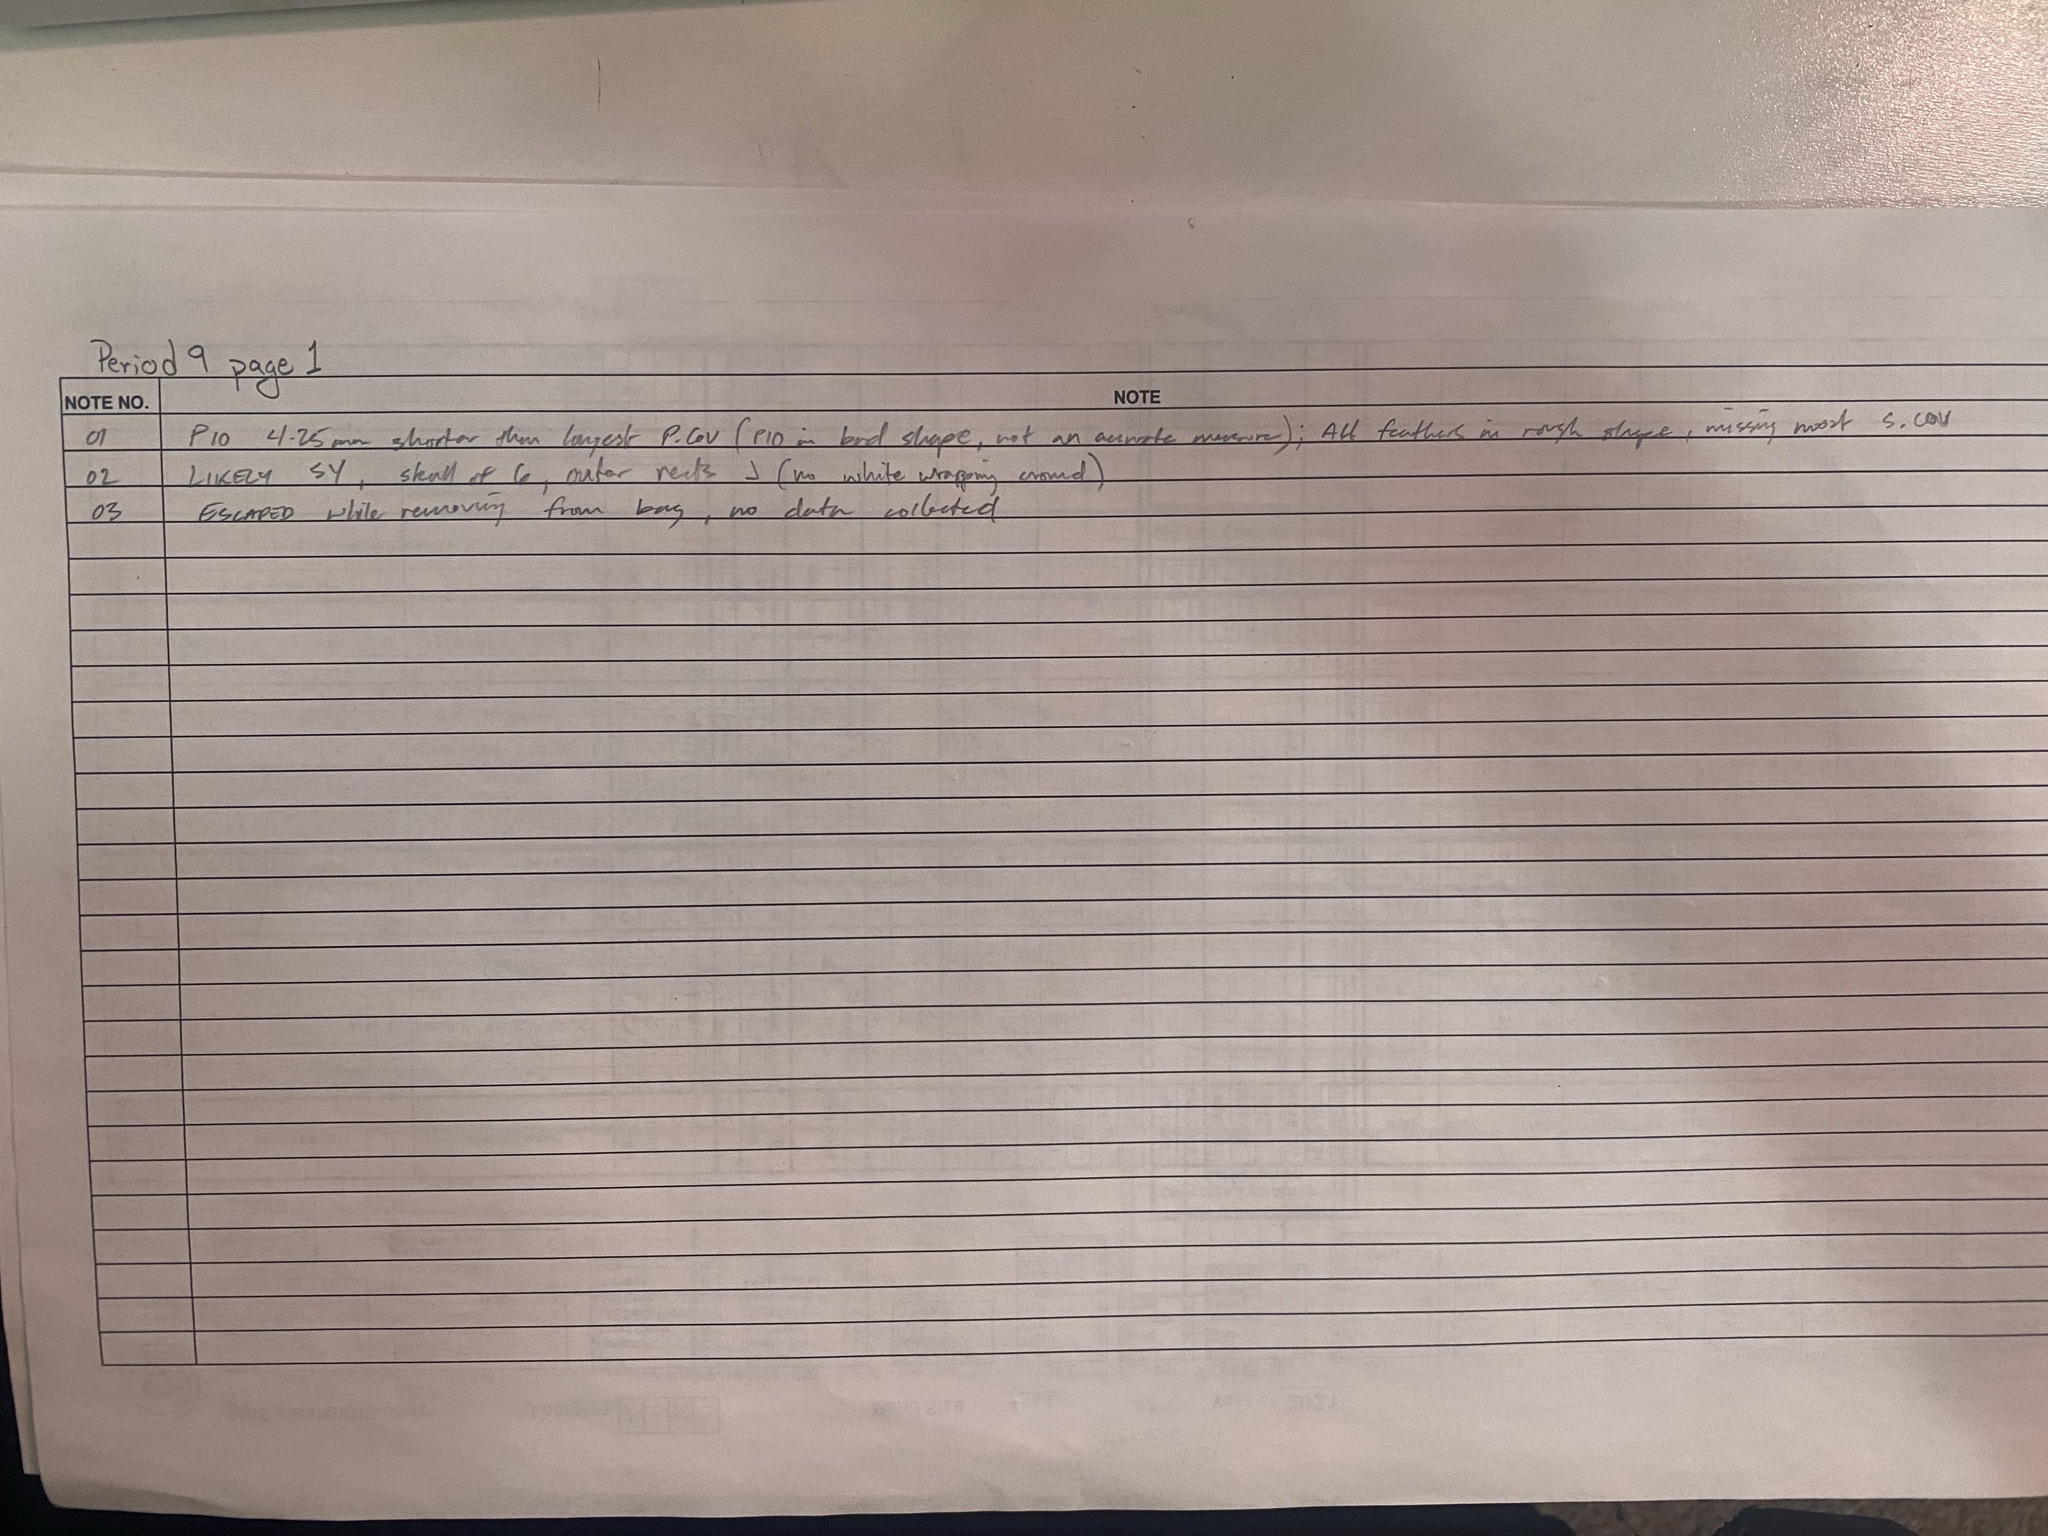 Period 9 page 1
NOTE NO. NOTE
01 P10 4.25mm shorter than longest P.Cov (P10 in bad shape, not an accurate measure); All feathers in rough shape, missing most s.cov
02 LIKELY SY, skull of 6, outer rects J (no white wrapping around)
03 ESCAPED while removing from bag, no data collected